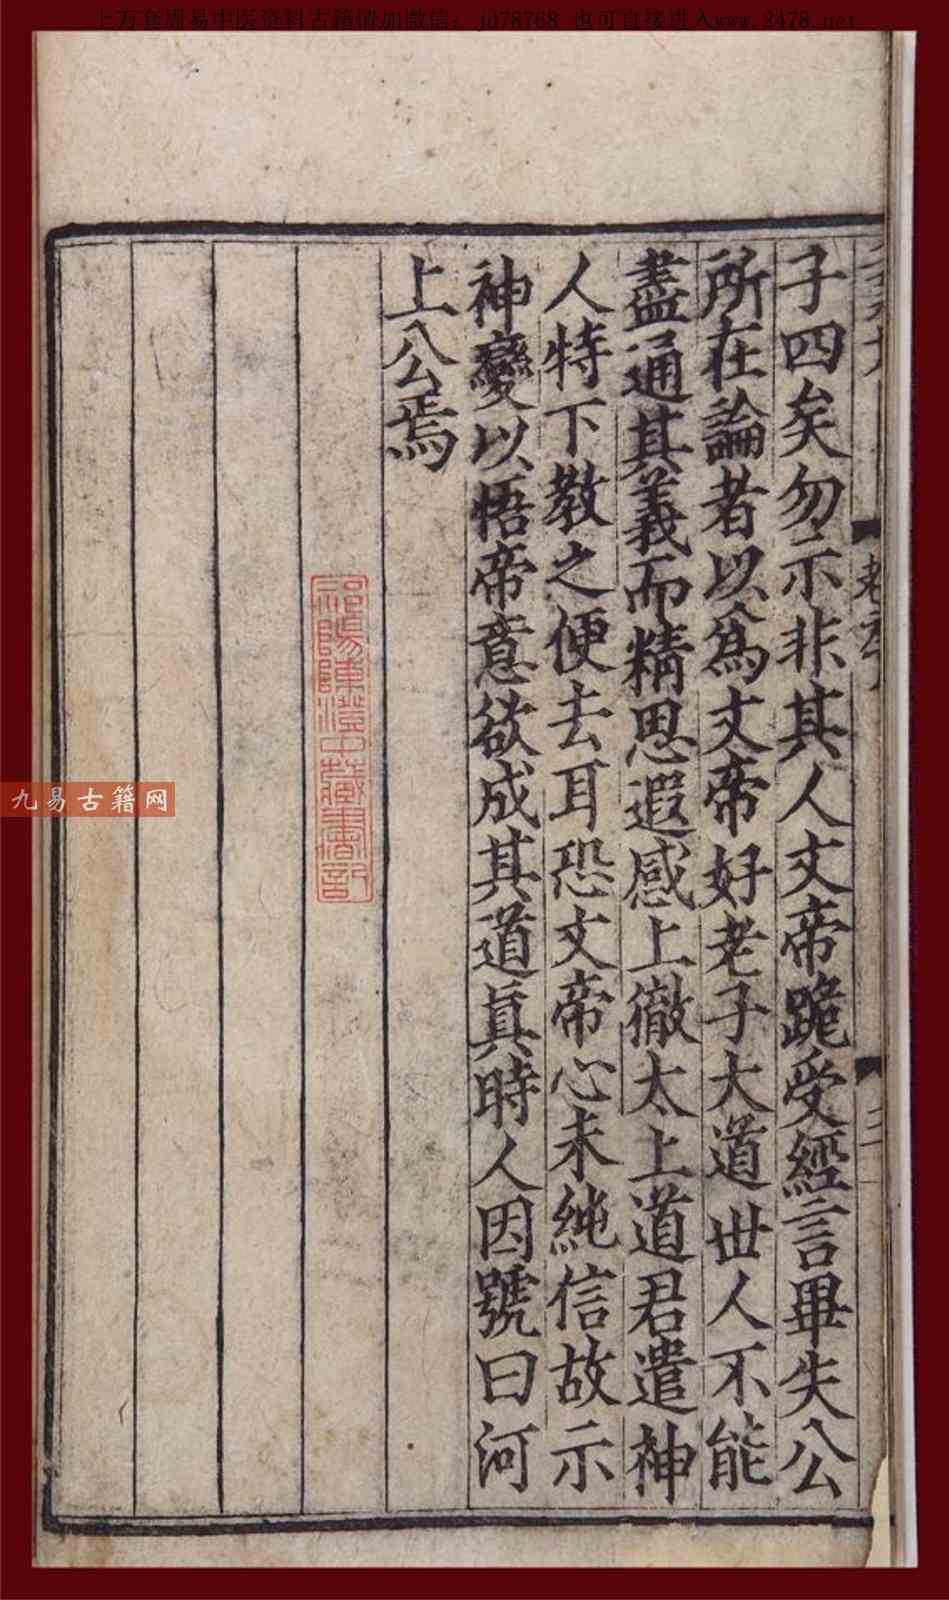 上万套周易中医资料古籍请加微信：jd78768 也可直接进入www.2478.net
子四矣勿示非其人文帝跪受經言畢失公
所在論者以為文帝好老子大道世人不能
盡通其義而精思遐感上徹太上道君遣神
人特下教之便去耳恐文帝心未純信故示
神變以悟帝意欲成其道真時人因號曰河
上公焉
祁陽陳澄中藏書記
九易古籍网